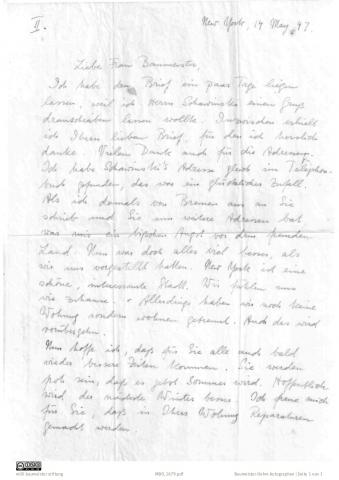 II.
New York, 14 May 47.
Liebe Frau Baumeister,
Ich habe den Brief ein paar Tage liegen
lassen, weil ich Herrn Schawinski einen Gruss
draufschreiben lassen wollte. Inzwischen erhielt
ich Ihren lieben Brief, für den ich herzlich
danke. Vielen Dank auch für die Adressen.
Ich habe Schawinski's Adresse gleich im Telephon-
buch gefunden, das war ein glücklicher Zufall.
Als ich damals von Bremen aus an Sie
schrieb und Sie um weitere Adressen bat
war mir ein bisschen Angst vor dem fremden
Land. Nun war doch alles viel besser, als
wir uns vorgestellt hatten. New York ist eine
schöne, interessante Stadt. Wir fühlen uns
wie zuhause. Allerdings haben wir noch keine
Wohnung sondern wohnen getrennt. Auch das wird
vorübergehen.
Nun hoffe ich, dass für Sie alle auch bald
wieder bessere Zeiten kommen. Sie werden
froh sein, dass es jetzt Sommer wird. Hoffentlich
wird der nächste Winter besser. Ich freue mich
für Sie, dass in Ihrer Wohnung Reparaturen
gemacht werden.
willi baumeister stiftung
Baumeister-Archiv Autographen | Seite 1 von 1